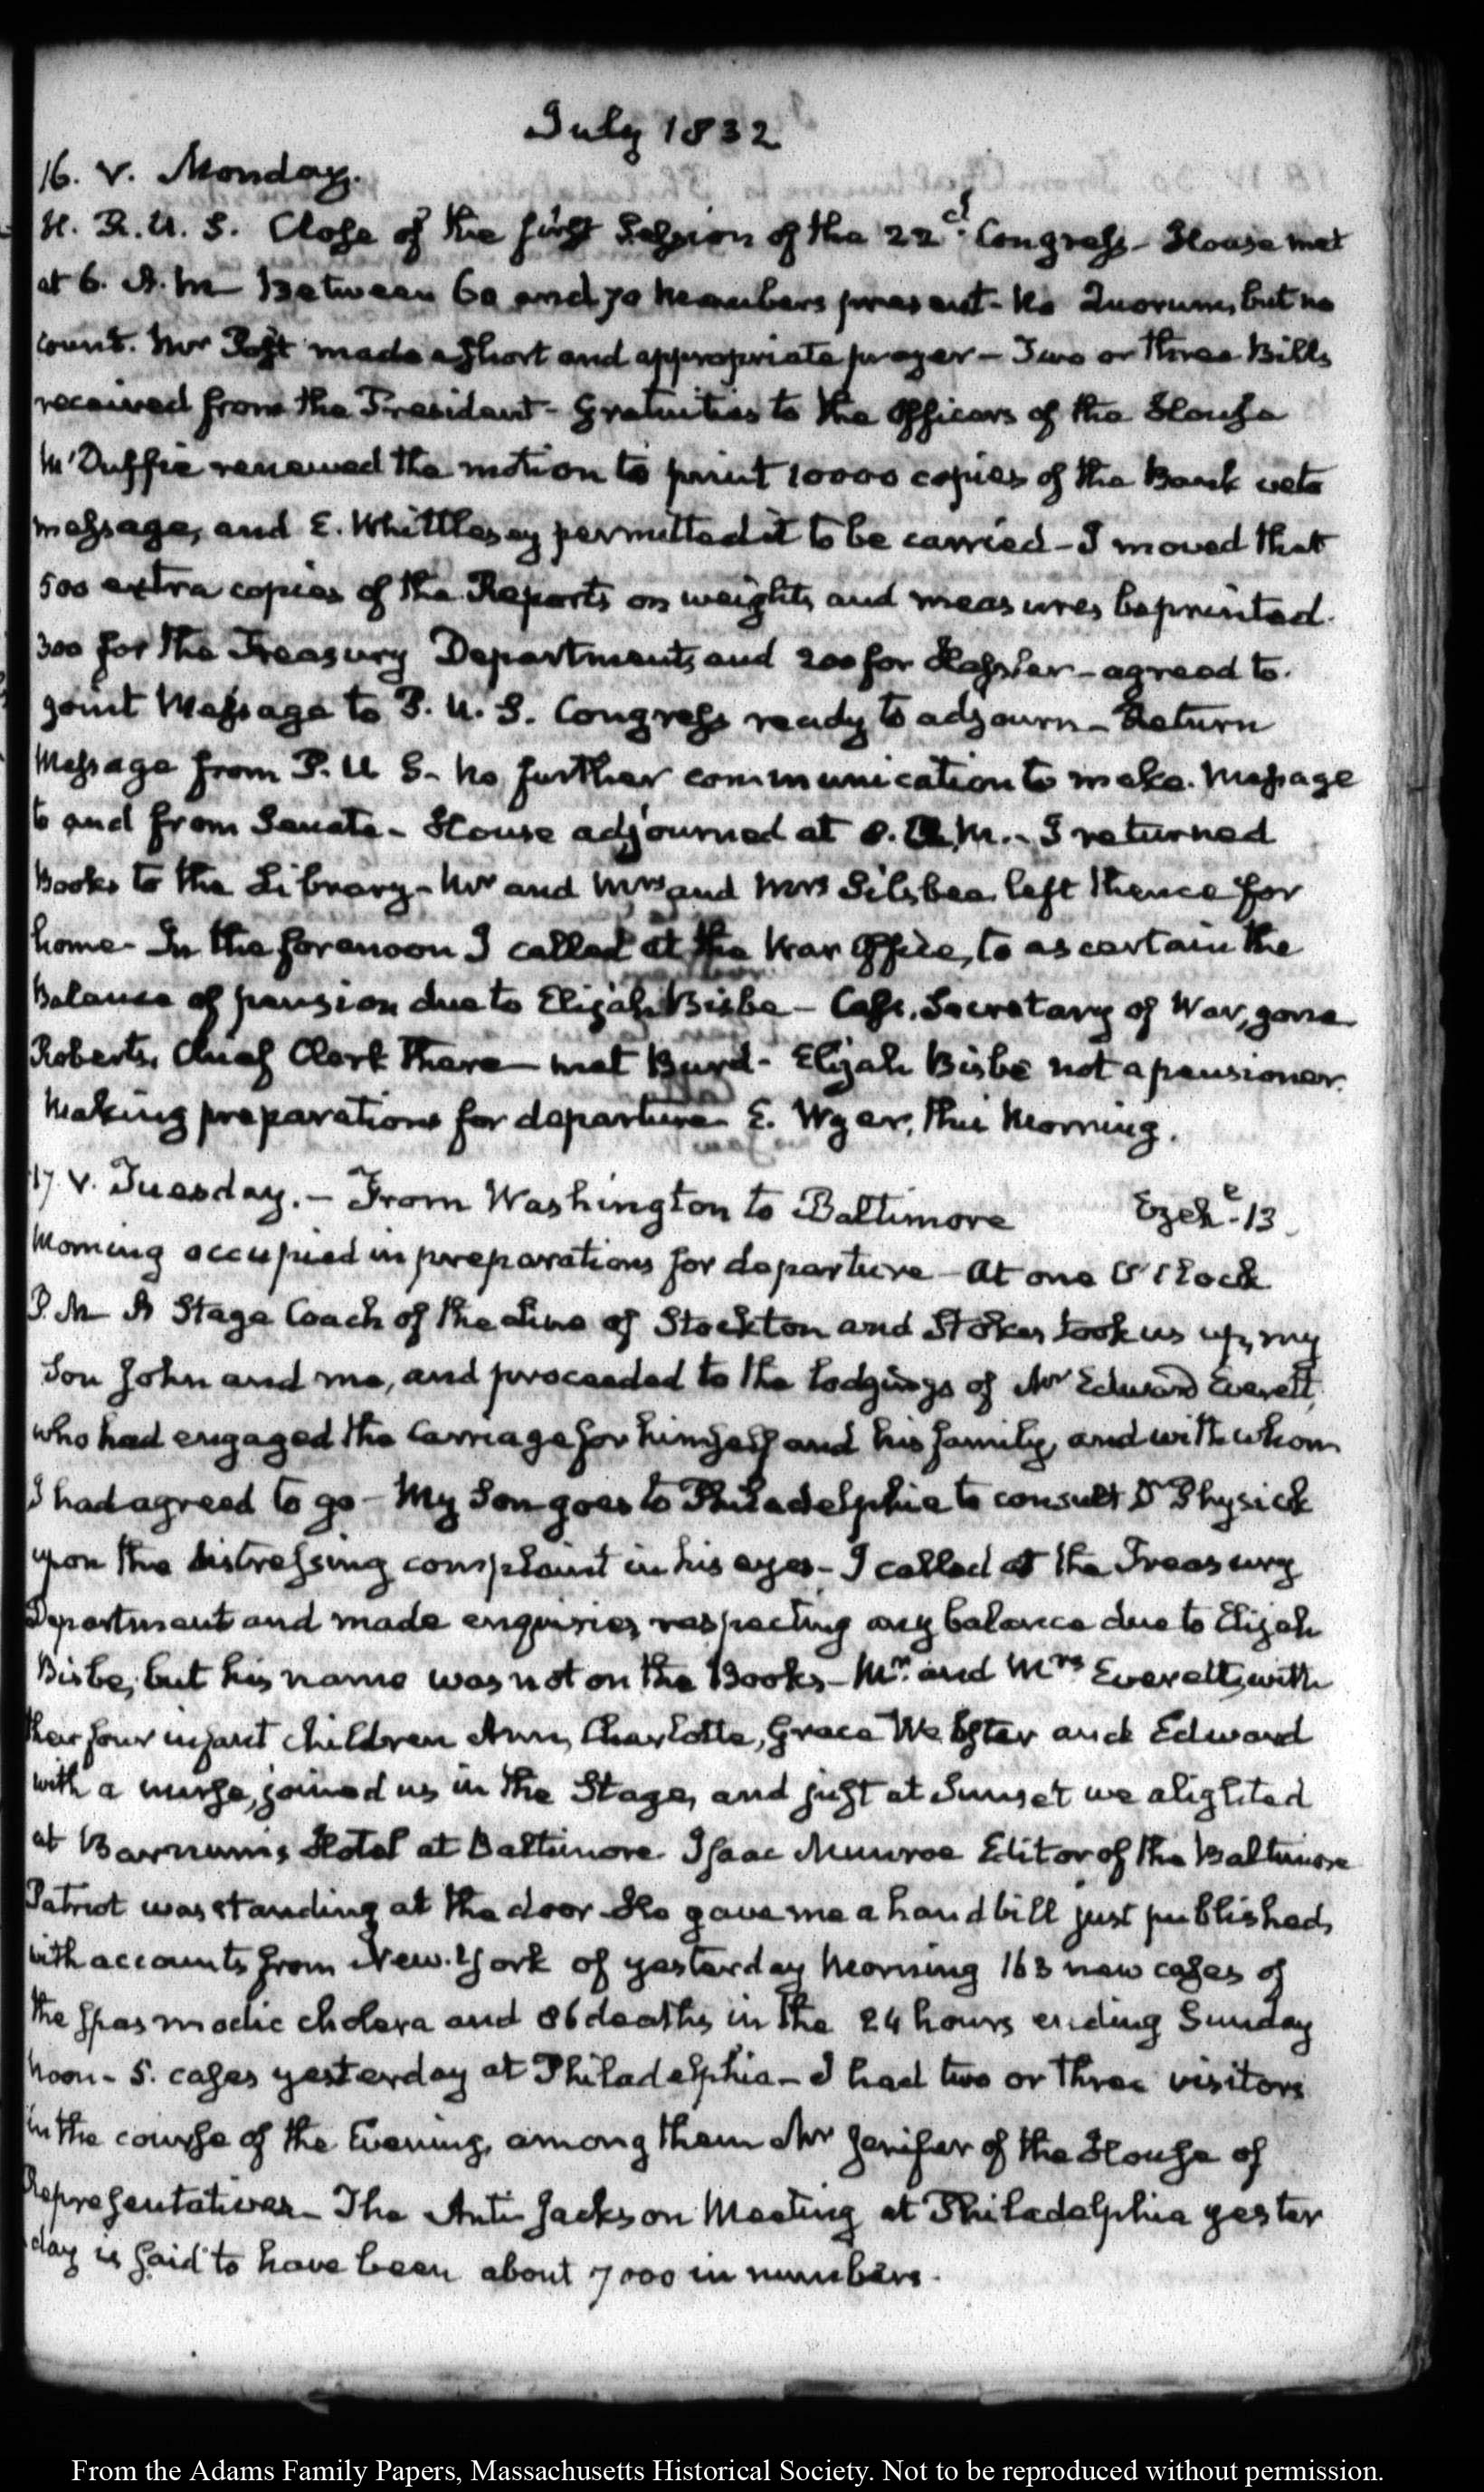 July 1832
16. V. Monday.
H. R. U. S. Close of the first Session of the 22d. Congress – House met
at 6. A.M – Between 60 and 70 Members present – No Quorum, but no
count. Mr Post made a short and appropriate prayer – Two or three Bills
received from the President – Gratuities to the Officers of the House
McDuffie renewed the motion to print 10000 copies of the Bank veto
message, and E. Whittlesey permitted it to be carried – I moved that
500 extra copies of the Reports on weights and measures be printed.
300 for the Treasury Department, and 200 for Hassler – agreed to.
joint Message to P. U. S. Congress ready to adjourn – Return
Message from P. U S – No further communication to make. Message
to and from Senate – House adjourned at 8. A.M. – I returned
Books to the Library – Mr and Mrs and Mrs Silsbee left thence for
home – In the forenoon I called at the War Office, to ascertain the
Balance of pension due to Elijah Bisbe – Cass, Secretary of War, gone
Roberts, Chief Clerk there – met Burd – Elijah Bisbe not a pensioner.
Making preparations for departure E. Wyer, this Morning.
17. V. Tuesday. – From Washington to Baltimore Ezeke – 13.
Morning occupied in preparations for departure – At one O'Clock
P.M A Stage Coach of the Line of Stockton and Stokes took us up, my
Son John and me, and proceeded to the lodgings of Mr Edward Everett,
who had engaged the Carriage for himself and his family, and with whom
I had agreed to go – My Son goes to Philadelphia to consult Dr Physick
upon the distressing complaint in his eyes – I called at the Treasury
Department and made enquiries respecting any balance due to Elijah
Bisbe, but his name was not on the Books – Mr. and Mrs Everett, with
their four infant children Ann, Charlotte, Grace Webster and Edward
with a nurse, joined us in the Stage, and just at Sunset we alighted
at Barnum's Hotel at Baltimore. Isaac Munroe Editor of the Baltimore
Patriot was standing at the door – He gave me a handbill just published,
with accounts from New-York of yesterday Morning 163 new cases of
the spasmodic cholera and 86 deaths in the 24 hours ending Sunday
Noon – 5. cases yesterday at Philadelphia – I had two or three visitors
in the course of the Evening, among them Mr Jenifer of the House of
Representatives – The Anti Jackson Meeting at Philadelphia yester
day is said to have been about 7000 in numbers.
From the Adams Family Papers, Massachusetts Historical Society. Not to be reproduced without permission.